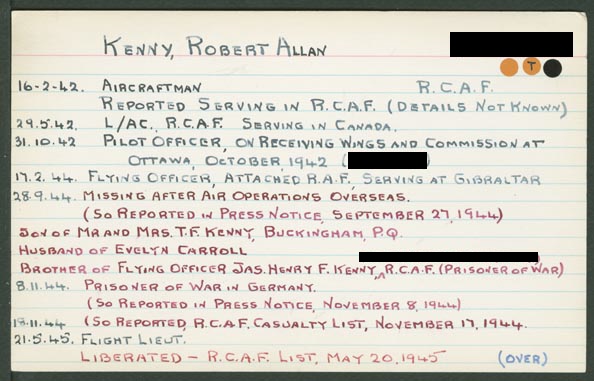 KENNY, ROBERT ALLAN
T
16-2-42. AIRCRAFTMAN R.C.A.F.
REPORTED SERVING IN R.C.A.F. (DETAILS NOT KNOWN)
29.5.42. L/AC., R.C.A.F. SERVING IN CANADA.
31.10.42 PILOT OFFICER, ON RECEIVING WINGS AND COMMISSION AT
OTTAWA, OCTOBER, 1942 (
17.2.44. FLYING OFFICER, ATTACHED R.A.F., SERVING AT GIBRALTAR
28.9.44. MISSING AFTER AIR OPERATIONS OVERSEAS.
(SO REPORTED IN PRESS NOTICE, SEPTEMBER 27, 1944)
SON OF MR AND MRS. T.F. KENNY, BUCKINGHAM, P.Q.
HUSBAND OF EVELYN CARROLL
BROTHER OF FLYING OFFICER JAS. HENRY F. KENNY, R.C.A.F. (PRISONER OF WAR)
8.11.44. PRISONER OF WAR IN GERMANY.
(SO REPORTED IN PRESS NOTICE, NOVEMBER 8, 1944)
18.11.44 (SO REPORTED, R.C.A.F. CASUALTY LIST, NOVEMBER 17, 1944.
21.5.45. FLIGHT LIEUT.
LIBERATED – R.C.A.F. LIST, MAY 20, 1945 (OVER)